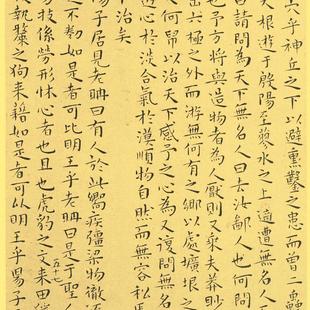 穴乎神丘之下以避熏鑿之患而曾二蟲
天根遊於殷陽至蓼水之上適遭無名人
曰請問為天下無名人曰去汝鄙人也何問
也予方將與造物者為人厭則又乘夫莽眇
出六極之外而游無何有之鄉以處壙埌之
又何帠以治天下感予之心為又復問無名
遊心於淡合氣於漠順物自然而無容私焉
下治矣
陽子居見老聃曰有人於此嚮疾彊梁物徹
不勌如是者可比明王乎老聃曰是于聖人
五十七
易技係勞形怵心者也且虎豹之文來田猨
執斄之狗來藉如是者可以明王乎陽子